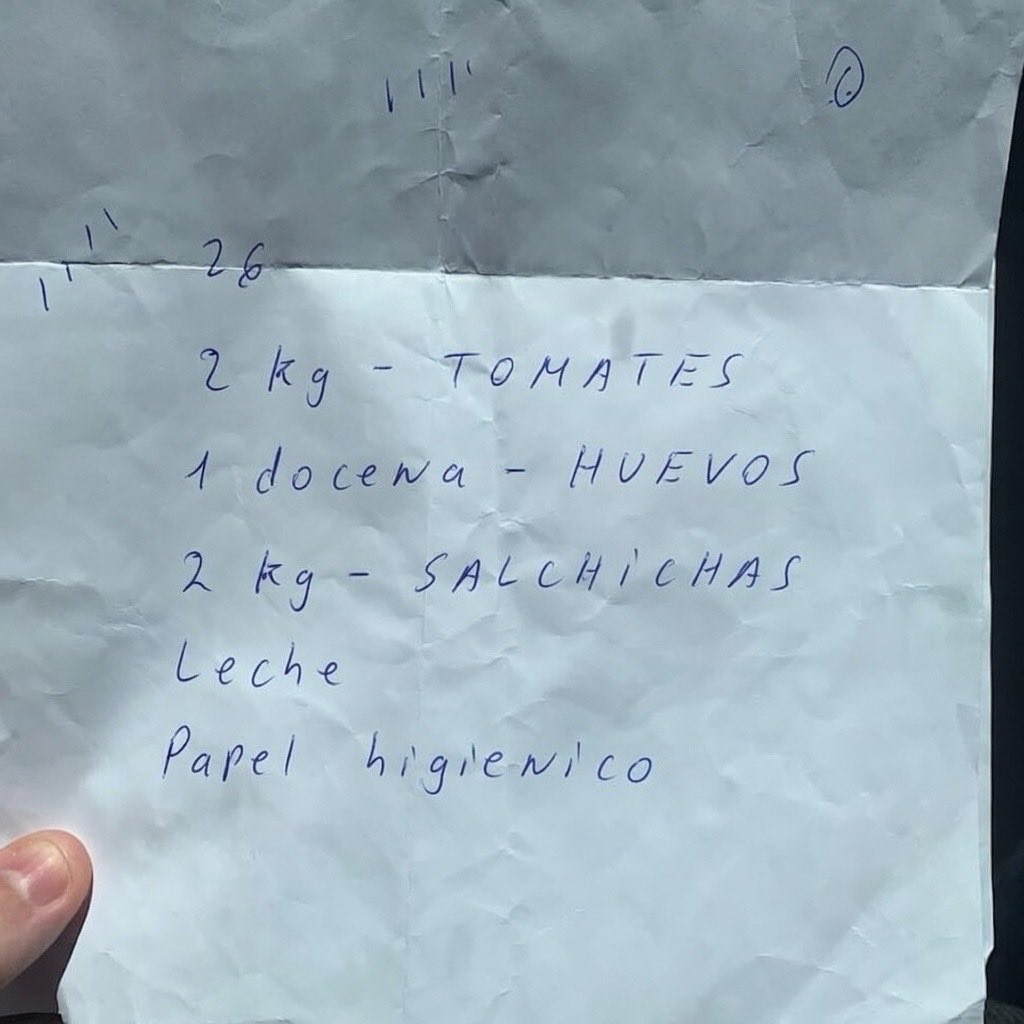 26
2 kg - TOMATES
1 docena - HUEVOS
2 kg - SALCHiCHAS
Leche
Papel higienico